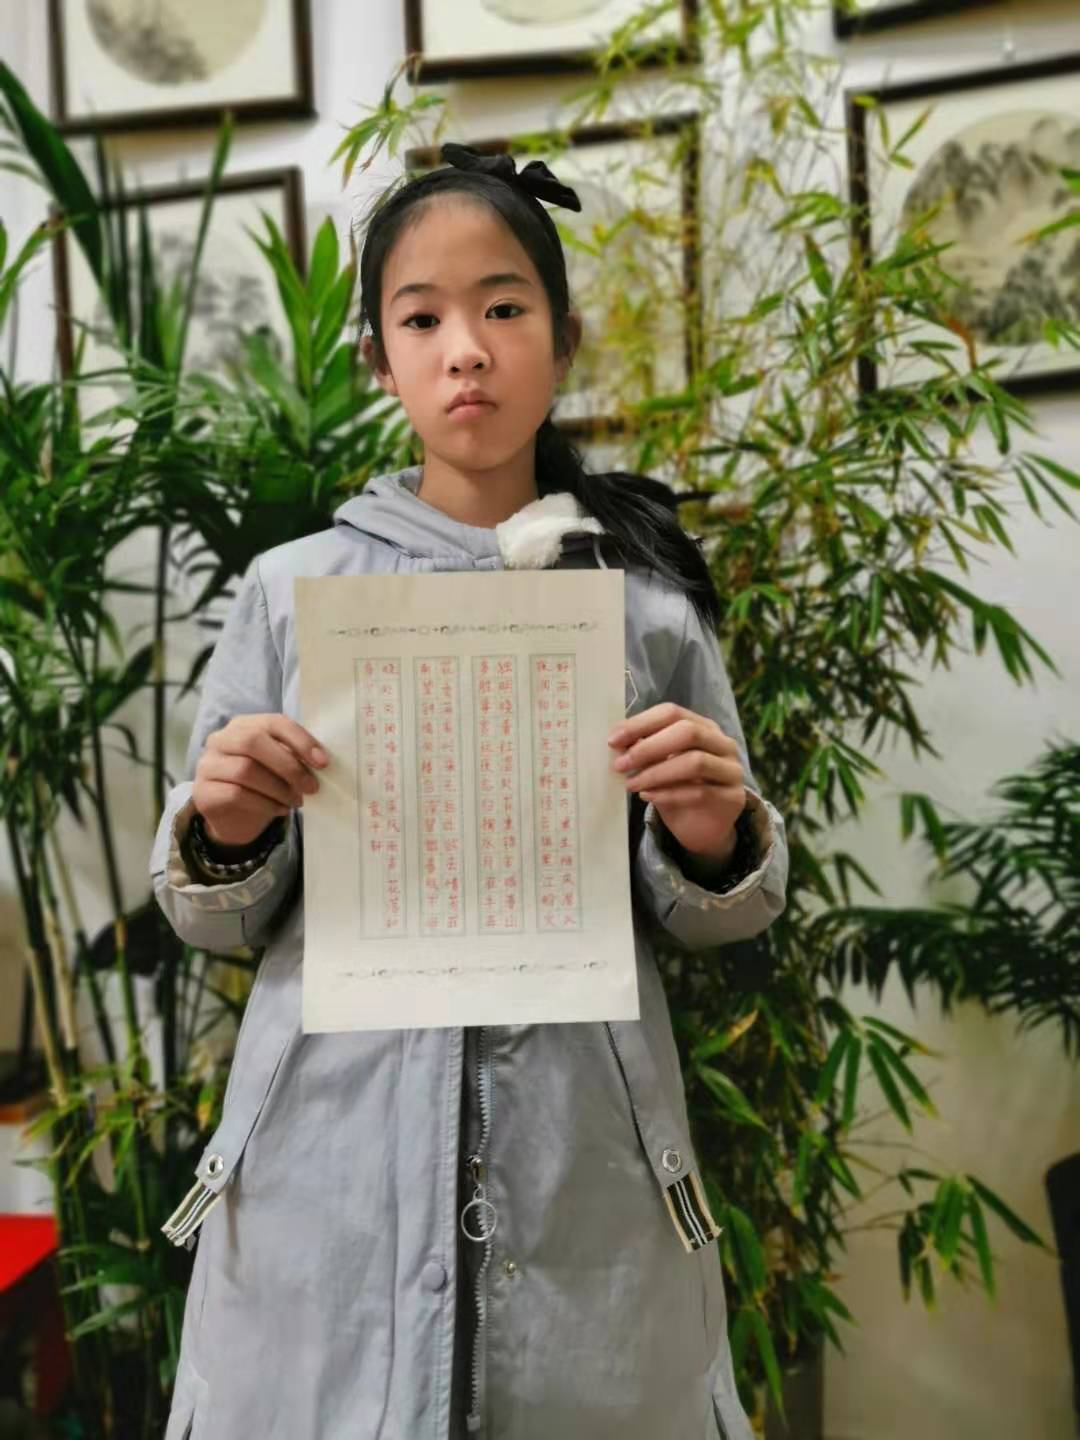 好雨知时节当春乃发生随风潜入
夜润物细无声野径云俱黑江船火
独明晓看红湿处花重锦官城春山
多胜事赏玩夜忘归掬水月在手弄
花香满衣兴来无远近欲去惜芳菲
南望钟鸣处楼台深翠微春眠不觉
晓处处闻啼鸟夜来风雨声花落知
多少古诗三首